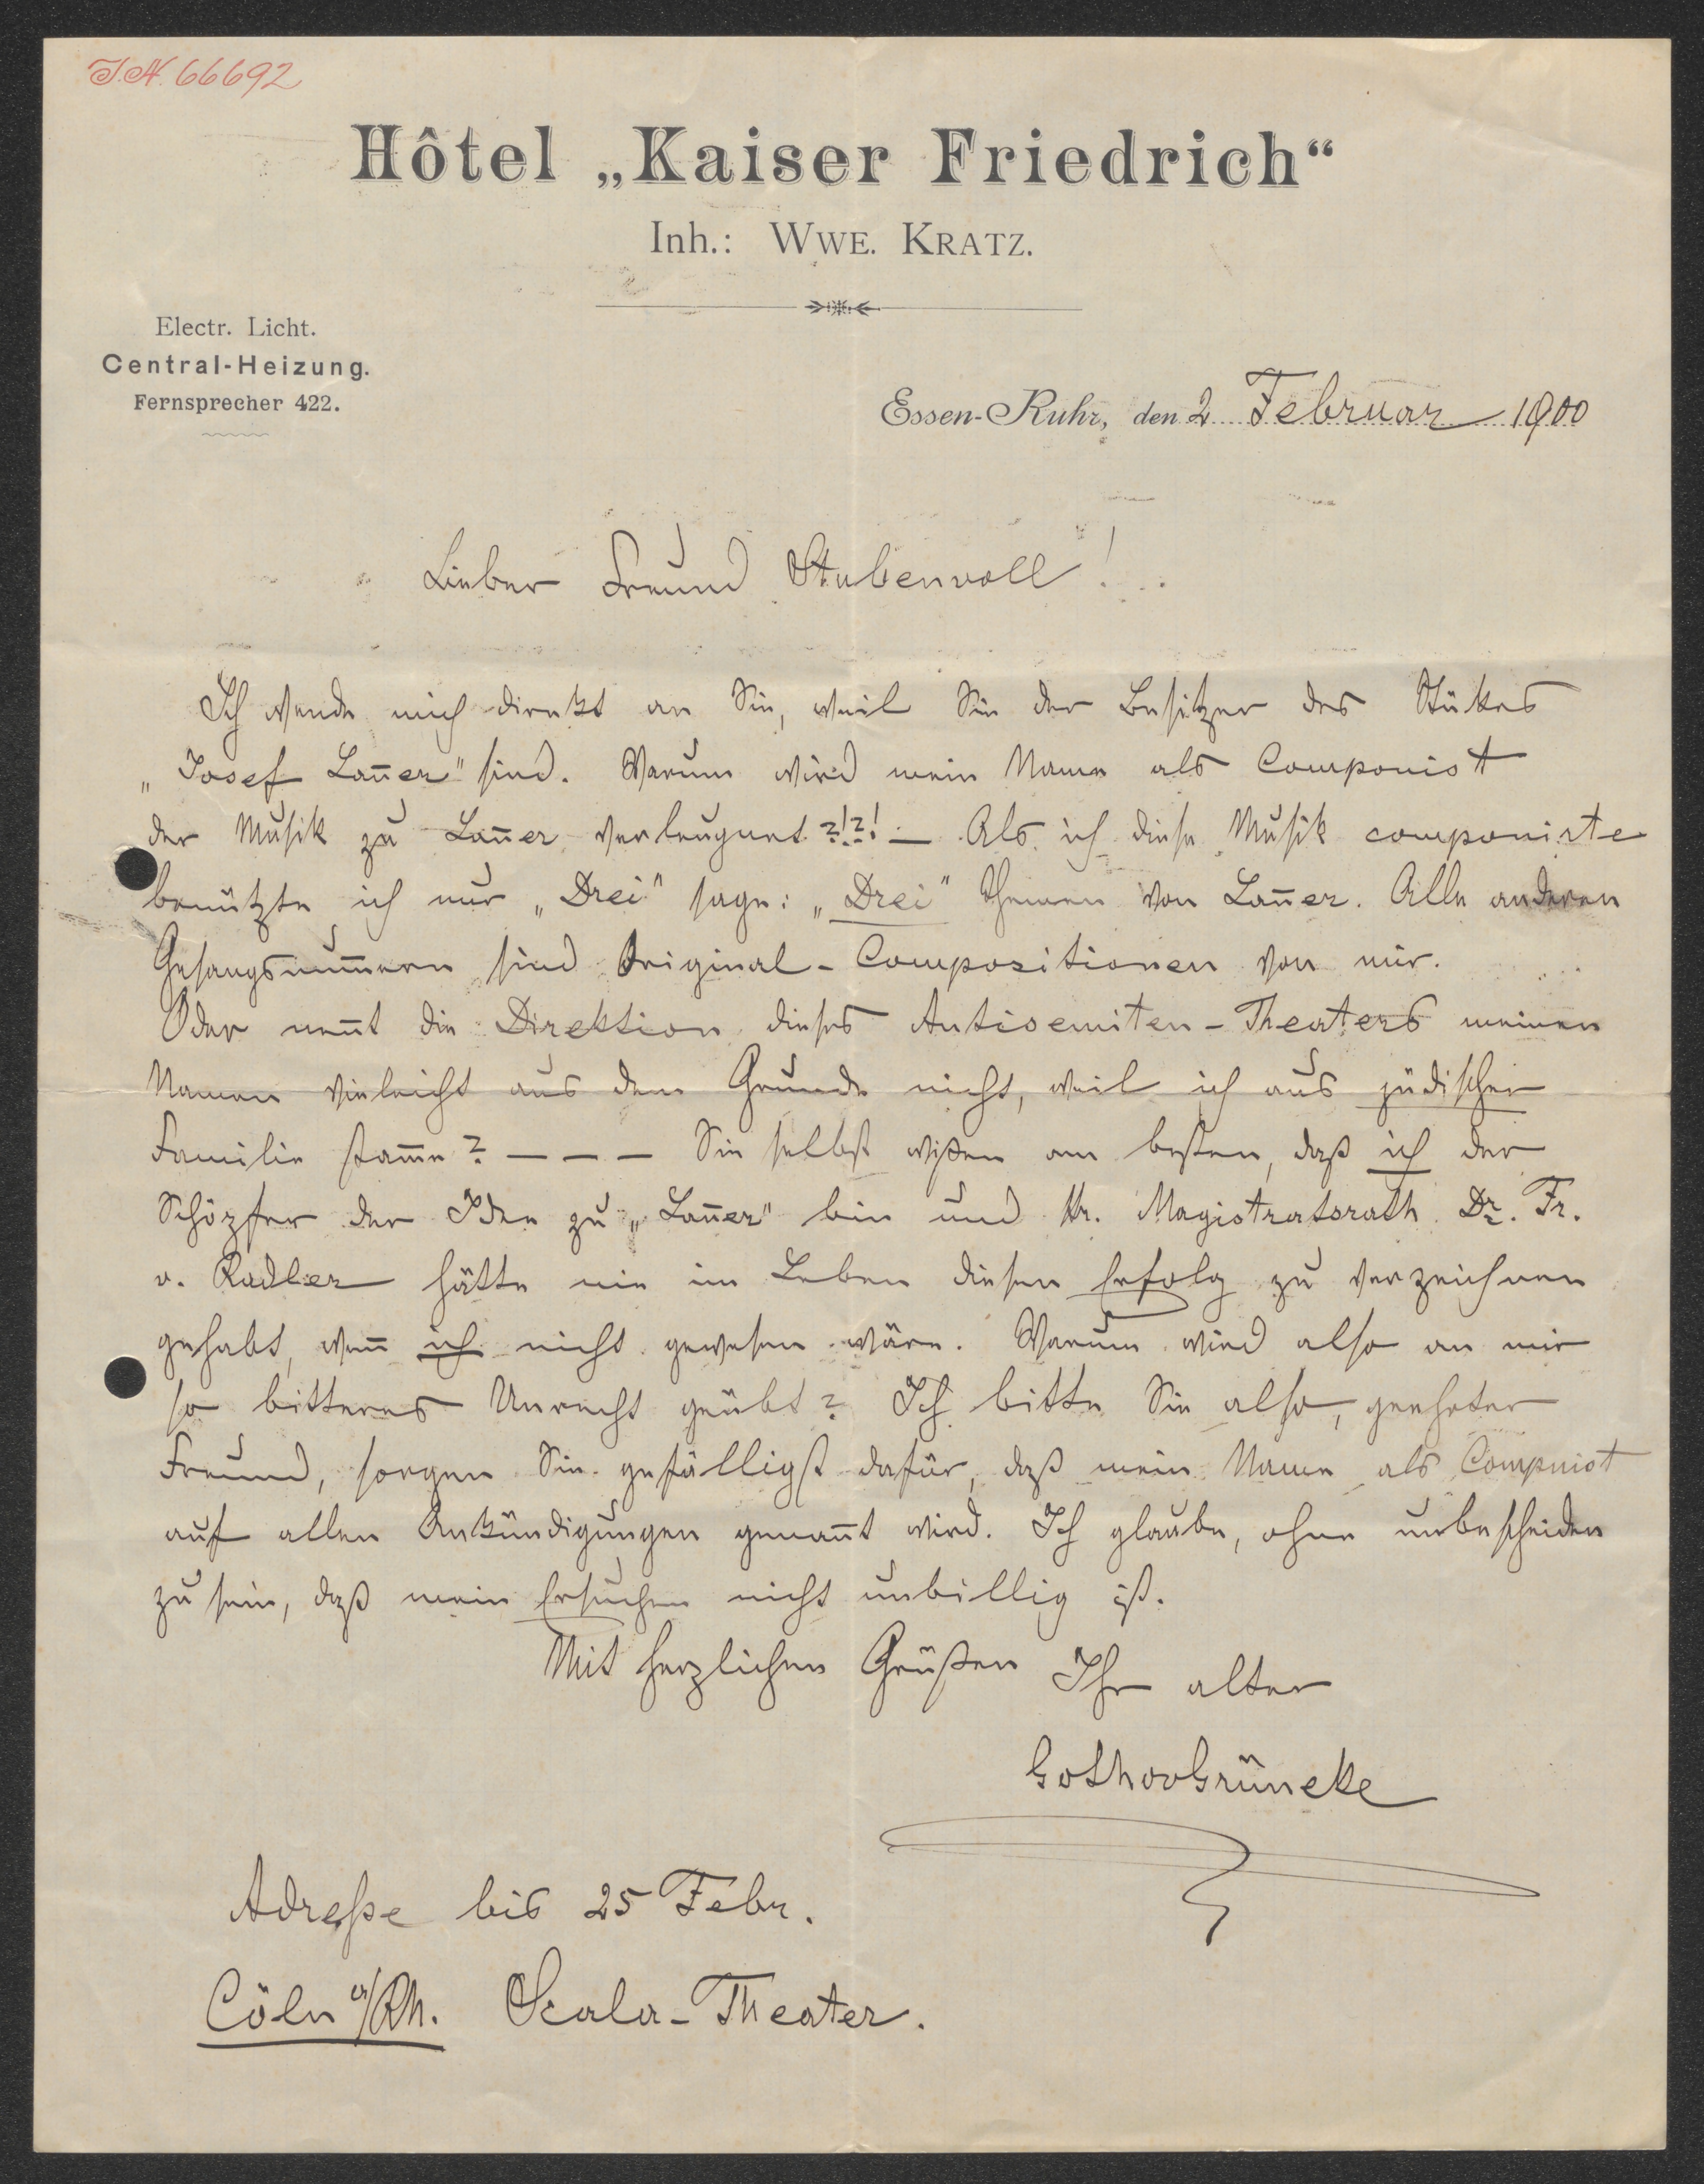 J.N. 66692
Hôtel „Kaiser Friedrich“
Inh.: Wwe. Kratz.
Electr. Licht.
Central-Heizung.
Fernsprecher 422.
Essen-Ruhr, den 2 Februar 1900
Lieber Freund Stubenvoll!
Ich wende mich direkt an Sie, weil Sie der Besitzer des Stükes
„Josef Lan̅er“ sind. Warum wird mein Name als Componist
der Musik zu Lan̅er verleugnet?!?! — Als ich diese Musik componirte
benützte ich nur „Drei“ sage: „Drei“ Themen von Lan̅er. Alle anderen
Gesangsnum̅ern sind Original-Compositionen von mir.
Oder nen̅t die Direktion dieses Antisemiten-Theaters meinen
Namen vieleicht aus dem Grunde nicht, weil ich aus jüdischer
Familie stam̅e? — — — Sie selbst wißen am besten, daß ich der
Schöpfer der Idee zu „Lan̅er“ bin und Hr. Magistratsrath Dr. Fr.
v. Radler hätte nie im Leben diesen Erfolg zu verzeichnen
gehabt, wen̅ ich nicht gewesen wäre. Warum wird also an mir
so bitteres Unrecht geübt? Ich bitte Sie also, geehrter
Freund, sorgen Sie gefälligst dafür, daß mein Name als Compnist
auf allen Ankündigungen genan̅t wird. Ich glaube, ohne unbescheiden
zu sein, daß mein Ersuchen nicht unbillig ist.
Mit herzlichen Grüßen Ihr alter
GothovGrüneke
Adreße bis 25 Febr.
Cöln a/Rh. Scala-Theater.